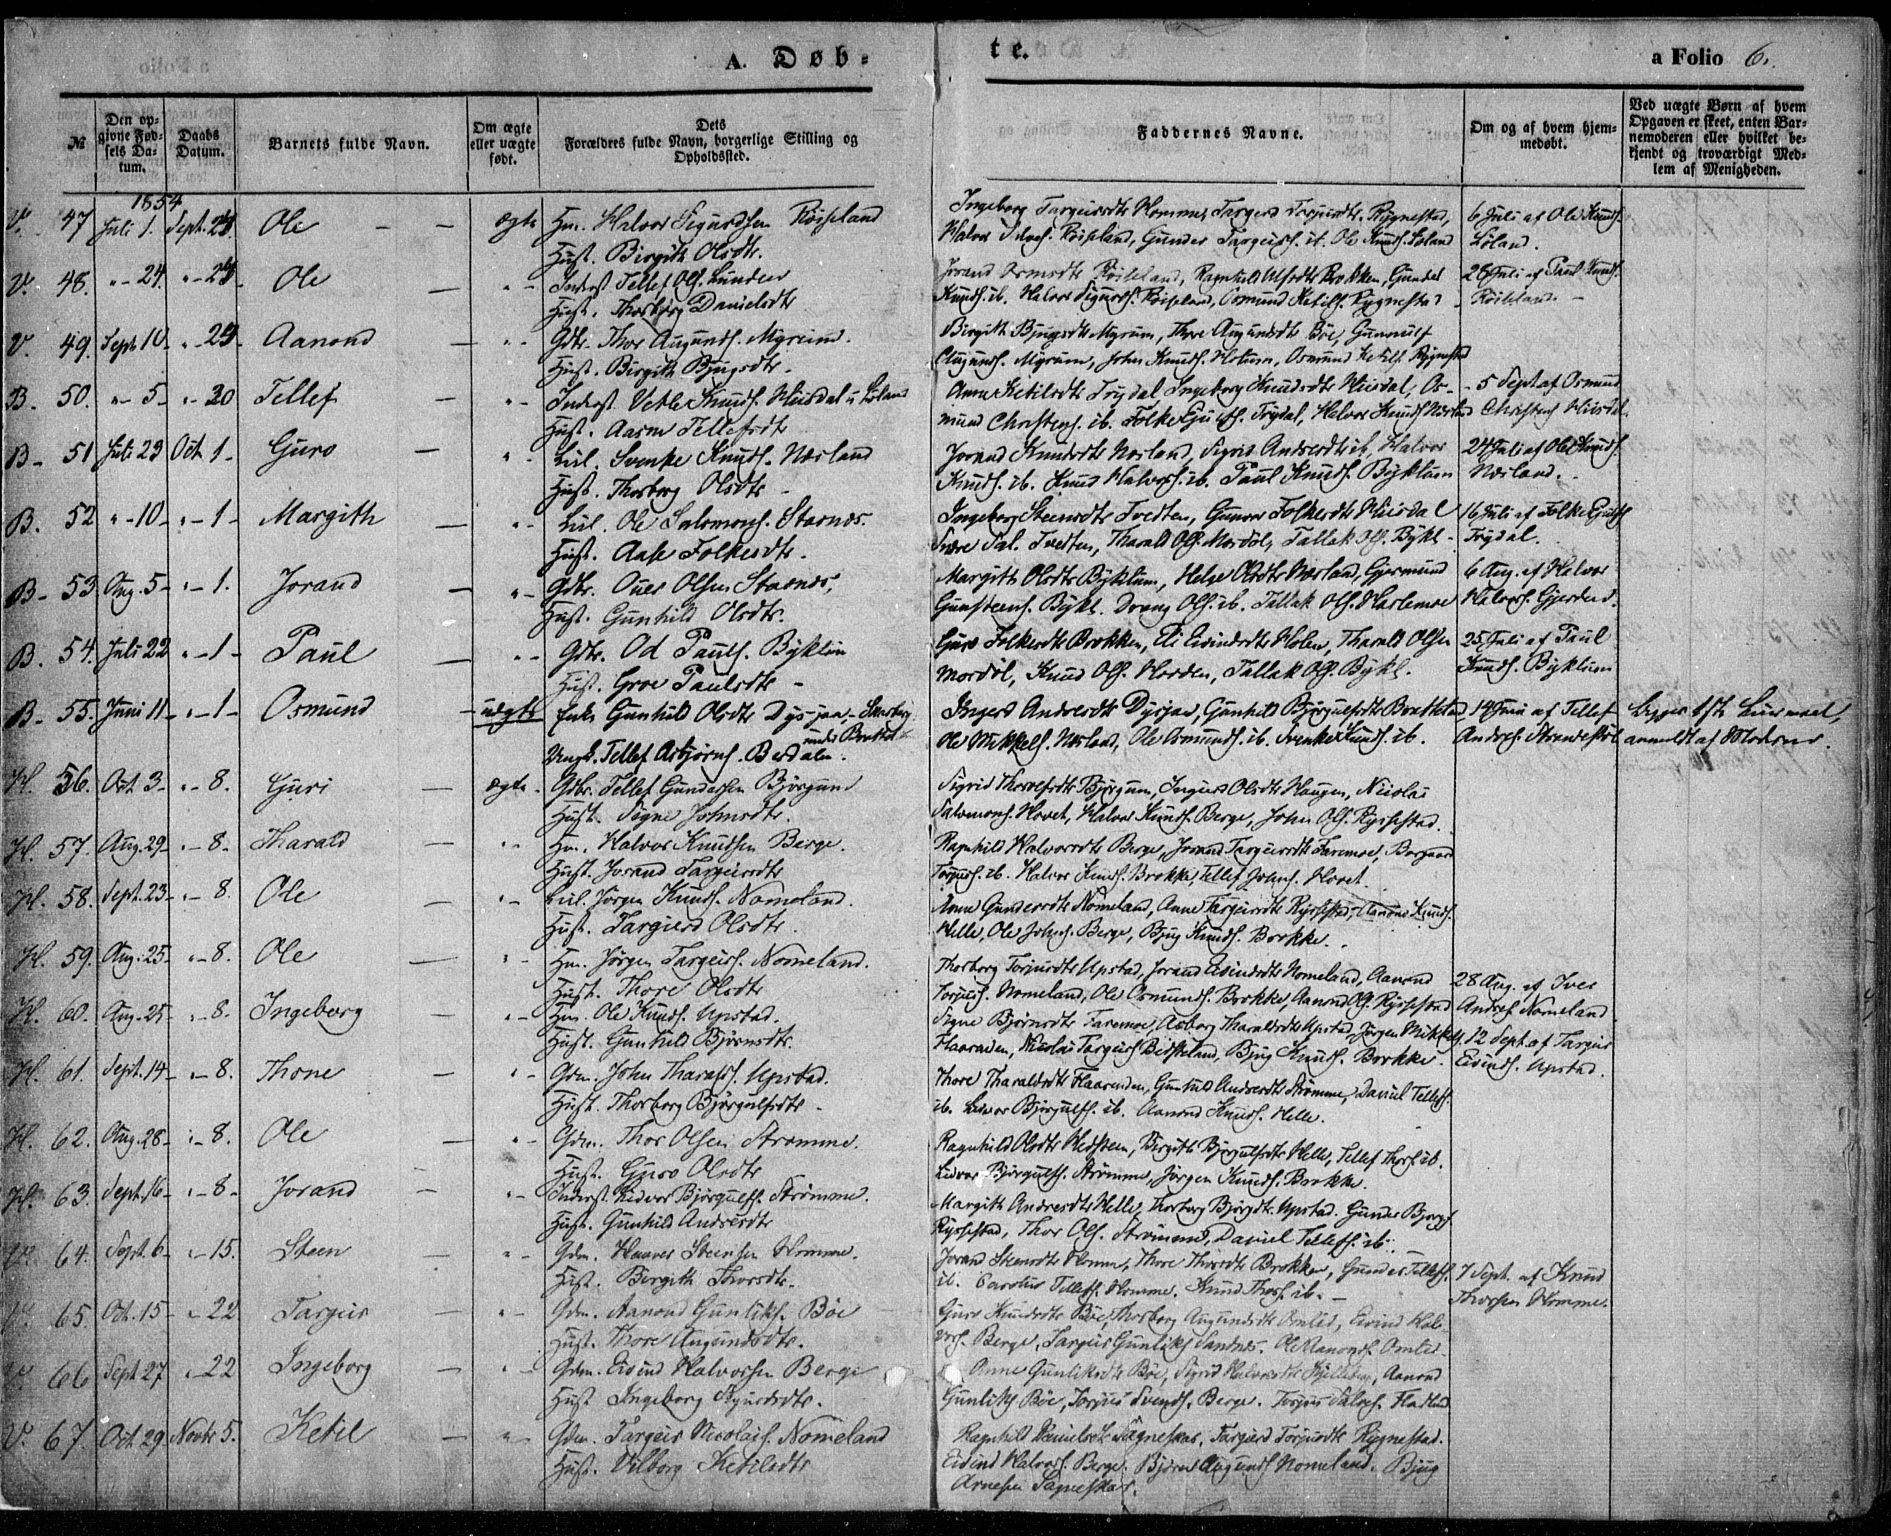 A. Døb-
te.
a Folio 6.
№
Den op-
givne Fød-
sels Da-
tum.
Daabs
Datum.
Barnets fulde Navn.
Om ægte
eller uægte
født.
Dets
Forældres fulde Navn, borgerlige Stilling og
Opholdssted.
Faddernes Navne.
Om og af hvem hjem-
medøbt.
Ved uægte Børn af hvem
Opgaven er skeet, enten Bar-
nemoderen eller hvilket be-
kjendt og troværdigt Med-
lem af Menigheden.
1854
V. 47 Juli 1. Sept. 24 Ole — ægte Hm. Halvor Sigurdsen Røiseland
Hust. Birgith Olsdt.
Ingeborg Targeirsdt Homme, Targerd Torjusdt. Rygnestad,
Halvor Røiseland, Gunder Targeirs. ib. Ole Knuds. Løland
6 Juli af Ole Knuds.
Løland.
V. 48. " - 24 " - 24 Ole — " - Inderst Tellef Ols. Lunden
Hust. Thorborg Danielsdt
Jorand Ormsdt Røiseland, Ragnhild Alfsdt Brokken, Gunder
Knuds. ib. Halvor Sigurds. Røiseland, Osmund Ketils. Rygnestad
28 Juli af Paul Knuds.
Røiseland. -
V. 49. Sept 10 " - 24 Aanond — " - Gdbr. Thor Augunds. Myrum.
Hust. Birgith Bjugsdt.
Birgith Bjugsdt Myrum, Thore Augundsdt Bøe, Gunnulf
Augunds. Myrum, John Knuds. Hotum, Osmund Ketils. Rygnestad
B. 50. " - 5 " - 30 Tellef — " - Inderst Vetle Knuds. Huisdal u. Løland
Hust. Aasne Tellefsdt
Anne Ketilsdt Trydal, Ingeborg Knudsdt Huisdal, Os-
mund Christens. ib. Folke Gjuls. Trydal, Halvor Knuds. Nærland
- 5 Sept af Osmund
Christens Huisdal.
B - 51 Juli 23 Oct. 1 - Guro — " - Lul. Svenke Knuds. Nærland
Hust. Thorborg Olsdt -
Jorand Knudsdt Nærland, Sigrid Andersdt ib, Halvor
Knuds. ib. Knud Halvors. ib. Paul Knuds. Byklum
24 Juli af Ole Knuds.
Nærland.
B. 52 " - 10 - " - 1 - Margith — " - Lul. Ole Salomons. Stavnæs.
Hust. Aase Folkesdt.
Ingeborg Steensdt Tvedten, Gunvor Folkesdt Huisdal
Sal. Tvedten, Tharald Ols. Mordøl, Tallak Ols. Bykl -
16 Juli af Folke Gjuls
Trydal.
B - 53 Aug. 5 - " - 1. Jorand — " - Gdbr. Ouer Olsen Stavnæs,
Hust. Gunhild Olsdt.
Margith Olsdt Byklum, Helge Olsdt Nærland, Gjermund
Gunsteens. Bykl. Ols. ib. Tallak Ols. Harlemoe
6 Aug. af Halvor
Halvors. Gjerden.
B. 54. Juli 22 " - 1 - Paul — " - Gdbr. Od Pauls. Byklum
Hust. Groe Paulsdt -
Guro Folkesdt Brokken, Eli Eivindsdt Holen, Tharald Olsen
Mordøl, Knud Ols. Horden, Tallak Ols. Bykl.
25 Juli af Paul
Knuds. Byklum
B - 55. Juni 11 - " - 1 - Osmund - uægte Enke Gunhild Olsdt Dysjaa -
under Brattel
Ungk. Tellef Asbjørns. Besdalen.
Ingerd Andersdt Dysjaa, Gunhild Bjørgulfsdt Brattelid
Ole Mikkels. Nærland, Ole Osmunds. ib. Svenke Knuds. ib.
14 Juni af Tellef
Anders. Strandestøl
Begges 1ste Leiermaal,
anmeldt af Moderen.
Hl. 56. Oct. 3 - " - 8. Guri — ægte. Gdbr. Tellef Gundersen Bjørgum
Hust. Signe Johnsdt.
Sigrid Thorolfsdt Bjørgum, Ingerd Olsdt Haugen, Nicolai
Salomons. Hovet, Halvor Knuds. Berge, John Ols. Rysestad.
Hl. 57. Aug. 29 - " - 8 - Tharald — " - Hm. Halvor Knudsen Berge.
Hust. Jorand Targeirsdt
Ragnhild Halvorsdt Berge, Jorand Targeirsdt Faremoe, Borgaar
Torjus. ib. Halvor Knuds. Brokke, Tellef Johns. Hovet.
Hl. 58. Sept. 23 - " - 8. Ole — " - Lul. Jørgen Knuds. Nomeland.
Hust. Targierd Olsdt.
Anne Gundersdt Nomeland, Anne Targeirsdt Rysestad, Aanond Knuds.
Helle, Ole Johns. Berge, Bjug Knuds. Brokke.
Hl. 59. Aug. 25 - " - 8. Ole — " - Hm. Jørgen Targeirs. Nomeland.
Hust. Thore Olsdt
Thorborg Torjusdt Upstad, Jorand Eivindsdt Nomeland, Aanond
Torjus. Nomeland, Ole Osmunds. Brokke, Aanond Ols. Rysestad
28 Aug. af Iver
Anders. Nomeland
Hl. 60. Aug. 25 - " - 8. Ingeborg — " - Hm. Ole Knuds. Upstad.
Hust. Gunhild Bjørnsdt.
Signe Bjørnsdt Faremoe, Aasborg Tharaldsdt Upstad, Jørgen Mikkels.
Flaarenden, Nicolai Targeirs. Besteland, Bjug Knuds. Brokke.
12 Sept. af Targeir
Eivinds. Upstad.
Hl. 61. Sept. 14 - " - 8. Thone — " - Gdm. John Tharalds. Upstad.
Hust. Thorborg Bjørgulfsdt -
Thore Tharaldsdt Flaarenden, Gunhild Andersdt Strømme, Daniel Tellefs.
ib. Leivor Bjørgulfs. ib. Aanond Knuds. Helle.
Hl. 62. Aug. 28 - " - 8. Ole — " - Gdm. Thor Olsen Strømme.
Hust. Guro Olsdt
Ragnhild Olsdt Hedsteen, Birgith Bjørgulfsdt Helle, Tellef Thors. ib.
Leivor Bjørgulfs. Strømme, Jørgen Knuds. Brokke.
Hl. 63. Sept. 16 - " - 8 - Jorand — " - Inderst Leidvor Bjørgulfs. Strømme.
Hust. Gunhild Andersdt
Margith Andersdt Helle, Thorborg Bjørgsdt. Upstad. Gunder Bjørgs.
Rysestad, Thor Ols. Strømme, Daniel Tellefs. ib.
V. 64. Sept. 6 - " - 15. Steen — " - Gdm. Haavor Steensen Homme.
Hust. Birgith Thorsdt.
Jorand Steensdt Homme, Thore Thorsdt Brokken, Gunder Tellefs.
ib. Carolus Tellefs. Homme. Knud Thors. ib. -
7 Sept. af Knud
Thorsen Homme.
V. 65. Oct. 15 - " - 22 Targeir — " - Gdm. Aanond Gunliks. Bøe
Hust. Thore Augundsdt.
Guro Knudsdt Bøe, Thorborg Augundsdt Omlid, Eivind Hal-
vors. Berge, Targeir Gunliks Sandnes. Ole Aanonds. Omlid -
V. 66 Sept 27 " - 22 Ingeborg — " - Gdm. Eivind Halvorsen Berge
Hust Ingeborg Sjursdt.
Anne Gunliksdt Bøe, Sigrid Halvorsdt Kjelleberg, Aanond
Gunliks Bøe, Torjus Svends. Berge. Torjus Salves. Flatland
V. 67. Oct 29 Novbr 5. Ketil — " - Gdm. Targeir Nicolais. Nomeland
Hust. Vilborg Ketilsdt
Ragnhild Danielsdt Sagneskar, Targjerd Torjusdt Rygnestad.
Eivind Halvors. Berge. Bjørn Augunds Nomeland. Bjug
Arnesen Sagneskar.